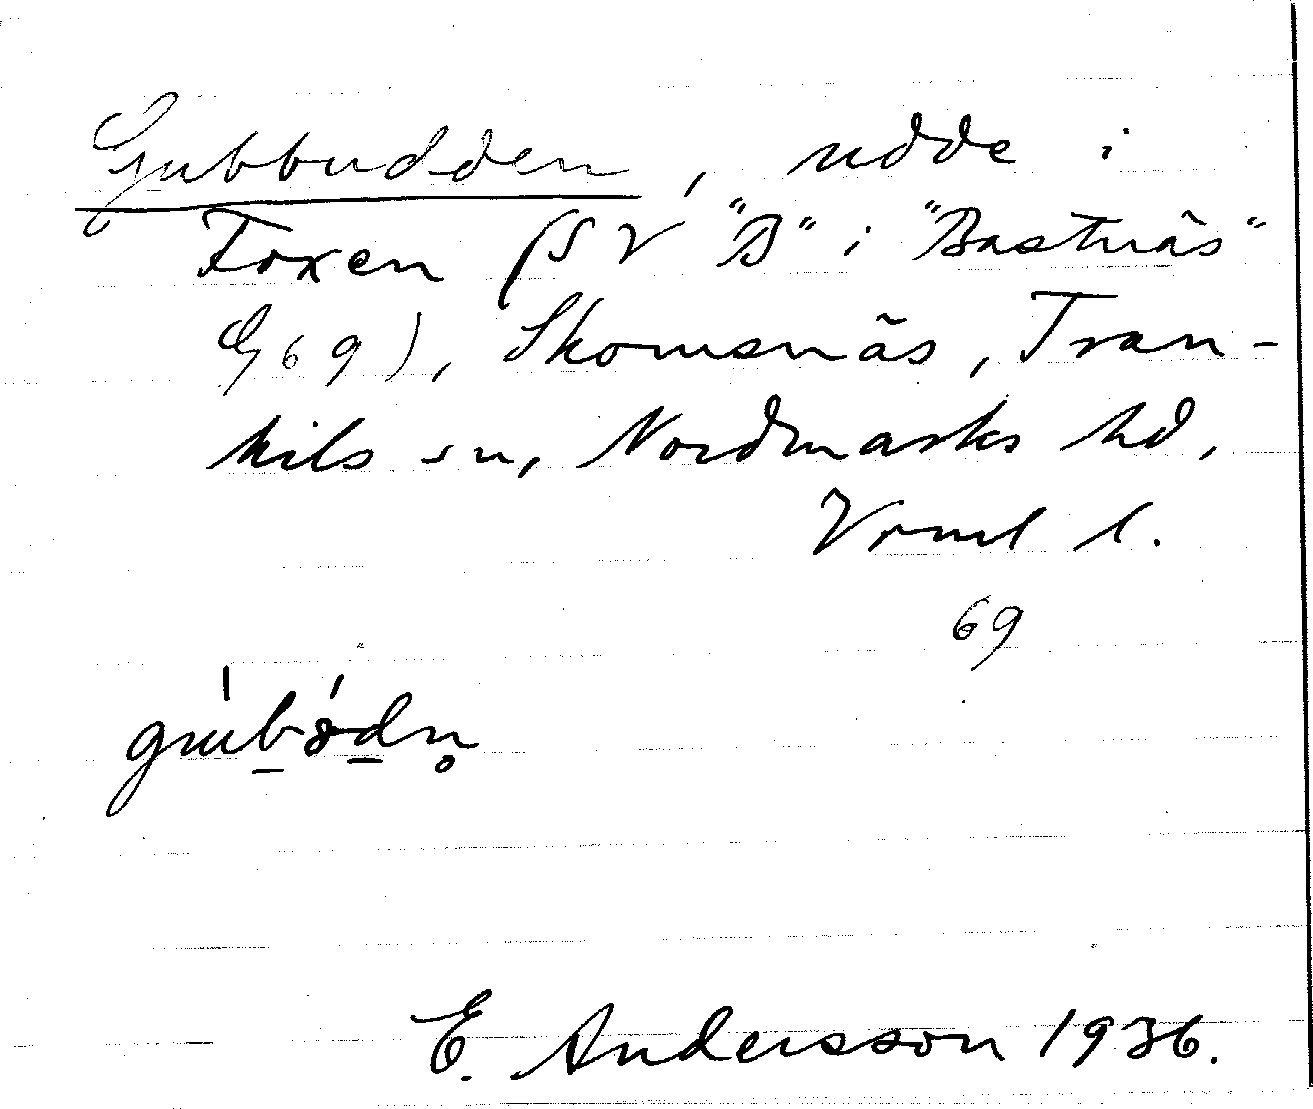 Gubbudden, udde i
Foxen (SV "B" i "Bastnäs"
G 69), Skomsnäs, Tran-
kils sn, Nordmarks hd,
Vrml l.
69
E. Andersson 1936.